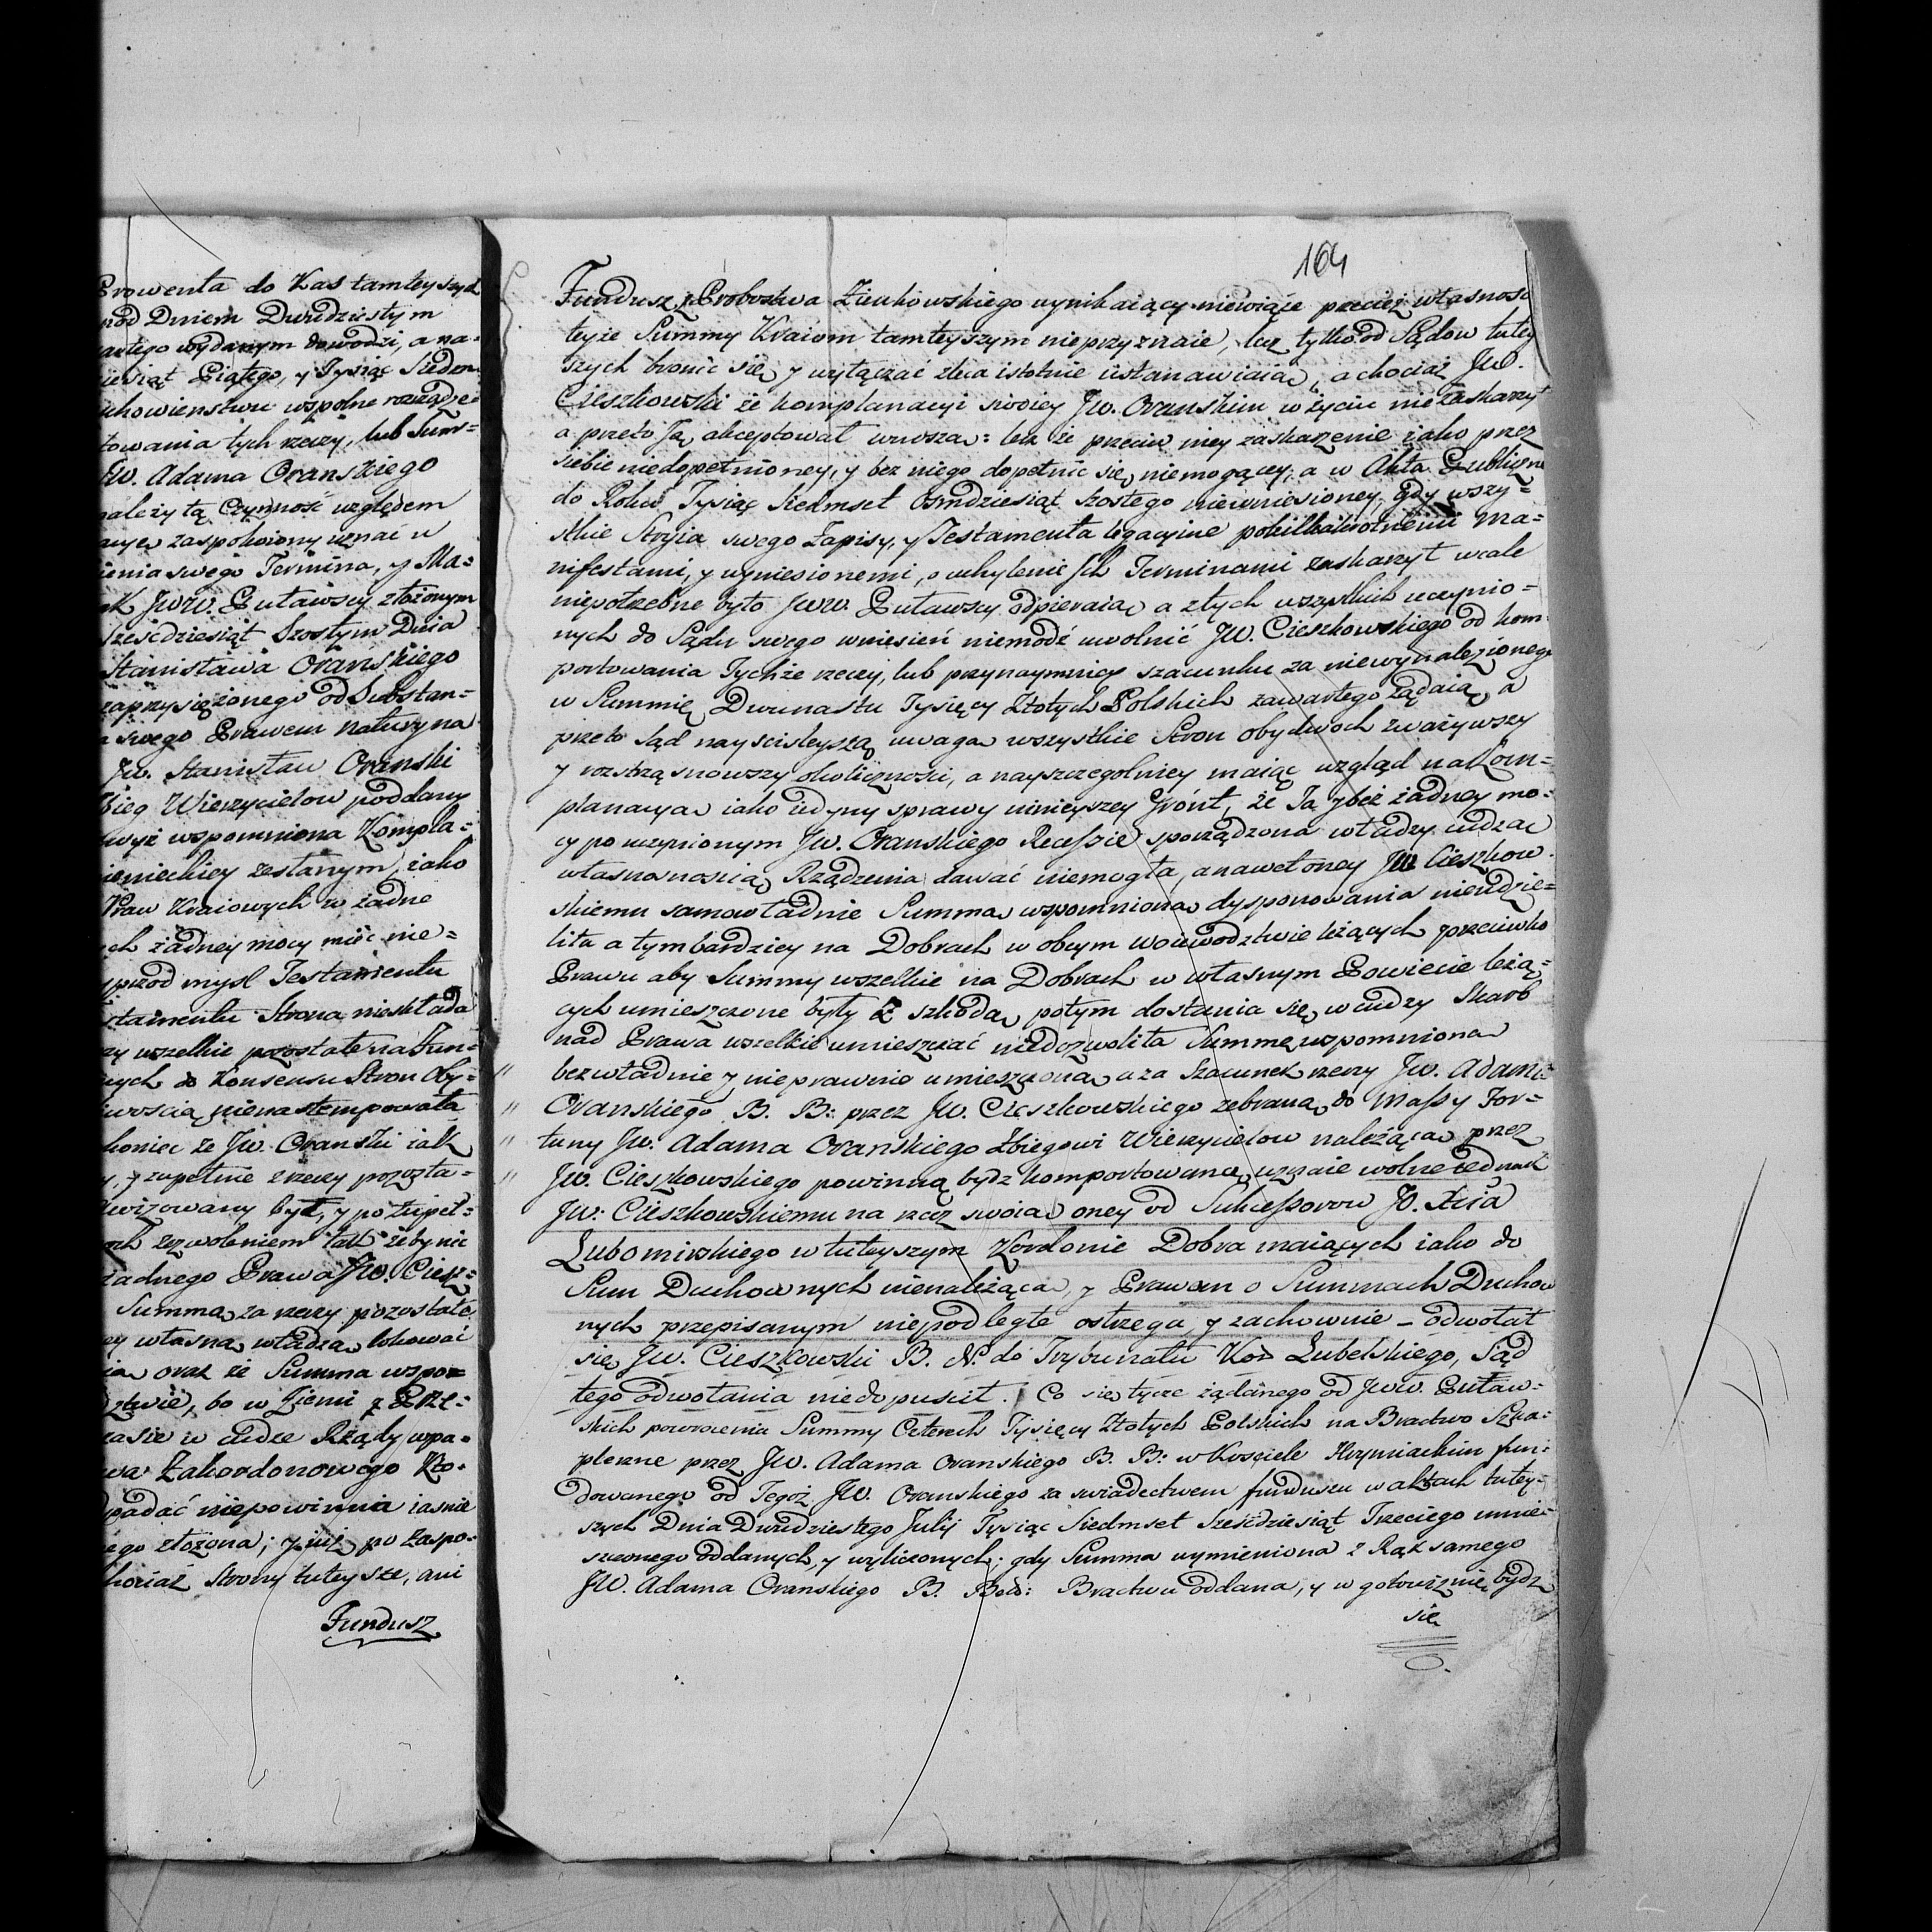 Prowenta do Kas tamteyszych
pod Dniem Dwudziestym
wydanym dowodzi, a na=
Piątego, y Tysiąc Siedm
uchowienstwu wspolne rozządze=
towania tych rzeczy, lub Sum=
JW. Adama Oranskiego
należytą Czynność względem
zaspokoiony uznać w
swego Termina, y Ma=
JWW. Puławscy złożonym
sześćdziesiąt Szostym Dnia
Stanisława Oranskiego
zaprzysiężonego od Substan=
swego Prawem natury na
Jw. Stanisław Oranski
Zbieg Wierzycielow poddany
wyż wspomniona Kompla=
zesłanym, iako
Praw Kraiowych w żadne
ch żadney mocy mieć nie=
przod mysl Testamentu
stamentu Strona nieskłada
wszelkie pozostałe na Fun=
nych do Konsensu Stron Oby=
wością nienastempowała
koniec że Jw. Oranski iak
y zupełnie z rzeczy pozosta=
wizowany był, y po zupeł=
zezwoleniem tak żeby nic
żadnego Prawa JW. Ciesz=
Summa za rzeczy pozostałe
własną władzą lokować
oraz że Summa wspo=
ztwie, bo w Ziemi z Prze=
zasie w cudze Rządy wpa=
Zakordonowego Ko=
padać niepowinna iasnie
ego złożona; y niż po zaspo=
chociaż Strony tuteysze, ani
Fundusz
164
Fundusz z Probostwa Zienkowskiego wynikaiący niewiąże przecież własnosć
teyże Summy Kraiom tamteyszym nieprzyznaie, lecz tylko od Sądow tutey
szych bronić się y wyłączać zleca istotnie ustanawiaią, a chociaż Jw.
Cieszkowski że komplanacyi swoiey Jw. Oranskim w życiu nie zaskarzył
a przeto Ją akceptował wnosza: lecz że przeciw niey zaskarzenie iako przez
siebie niedopełnioney, y bez niego dopełnić się niemogącey, a w Akta Publiczne
do Roku Tysiąc Siedmset Osmdziesiąt Szostego niewniesioney, gdy wszy=
stkie Stryia swego Zapisy, y Testamenta legacyine pokilkakrotnemi Ma=
nifestami, y wyniesionemi, o uchylenie Ich Terminami zaskarzył wcale
niepotrzebne było Jww. Puławscy odpieraiąc a z tych wszystkich uczynio=
nych do Sądu swego wniesień niemodź uwolnić JW. Cieszkowskiego od kom=
portowania Tychże rzeczy, lub przynaymniey szacunku za niewynalezionego
w Summie Dwunastu Tysięcy Złotych Polskich zawartego żądaią, a
przeto Sąd nayscisleyszą uwagą wszystkie Stron obydwoch zważywszy
y roztrząsnowszy okoliczności, a nayszczegolniey maiąc wzgląd na Kom=
planacyą iako iedyny sprawy ninieyszey Grónt, że Ta y bez żadney mo=
cy po uczynionym Jw. Oranskiego Recessie sporządzona władzy cudzą
własnoscią Rządzenia dawać niemogła, a nawet oney Jw Cieszkow=
skiemu samowładnie Summą wspomnioną dysponowania nieudzie=
liła a tymbardziey na Dobrach w obcym wojewodztwie leżących przeciwko
Prawu aby Summy wszelkie na Dobrach w własnym Powiecie leżą=
cych umieszczone były z szkodą potym dostania się w cudzy Skarb
nad Prawa wszelkie umieszczać niedozwoliła Summę wspomnioną
bezwładnie y nieprawnie umieszczoną a za Szacunek rzeczy Jw. Adama
Oranskiego B. B: przez Jw. Cieszkowskiego zebraną do Massy For=
tuny Jw. Adama Oranskiego Zbiegowi Wierzycielow należącą przez
Jw. Cieszkowskiego powinną bydz komportowaną uznaie wolne iednak
Jw: Cieszkowskiemu na rzecz swoią oney od Sukcessorow JO. Xcia
Lubomirskiego w tuteyszym Kordonie Dobra maiących iako do
Sum Duchownych nienależącą, y Prawem o Summach Duchow
nych przepisanym niepodległe ostrzega y zachownie – odwołał
się Jw. Cieszkowski B. N. do Trybunału Kor Lubelskiego, Sąd
tego odwołania niedopuscił. Co się tycze żądanego od Jww. Puław=
skich powrocenia Summy Czterech Tysięcy Złotych Polskich na Bractwo Szka=
plerzne przez Jw. Adama Oranskiego B. B: w Kosciele fun=
dowanego od Tegoż Jw. Oranskiego za swiadectwem funduszu w aktach tutey=
szych Dnia Dwudziestego Julij Tysiąc Siedmset Sześćdziesiąt Trzeciego umie=
szczonego oddanych, y wyliczonych; gdy Summa wymieniona z Rąk samego
JW. Adama Oranskiego B. Bractwu oddana, y w gotowiźnie bydz
się